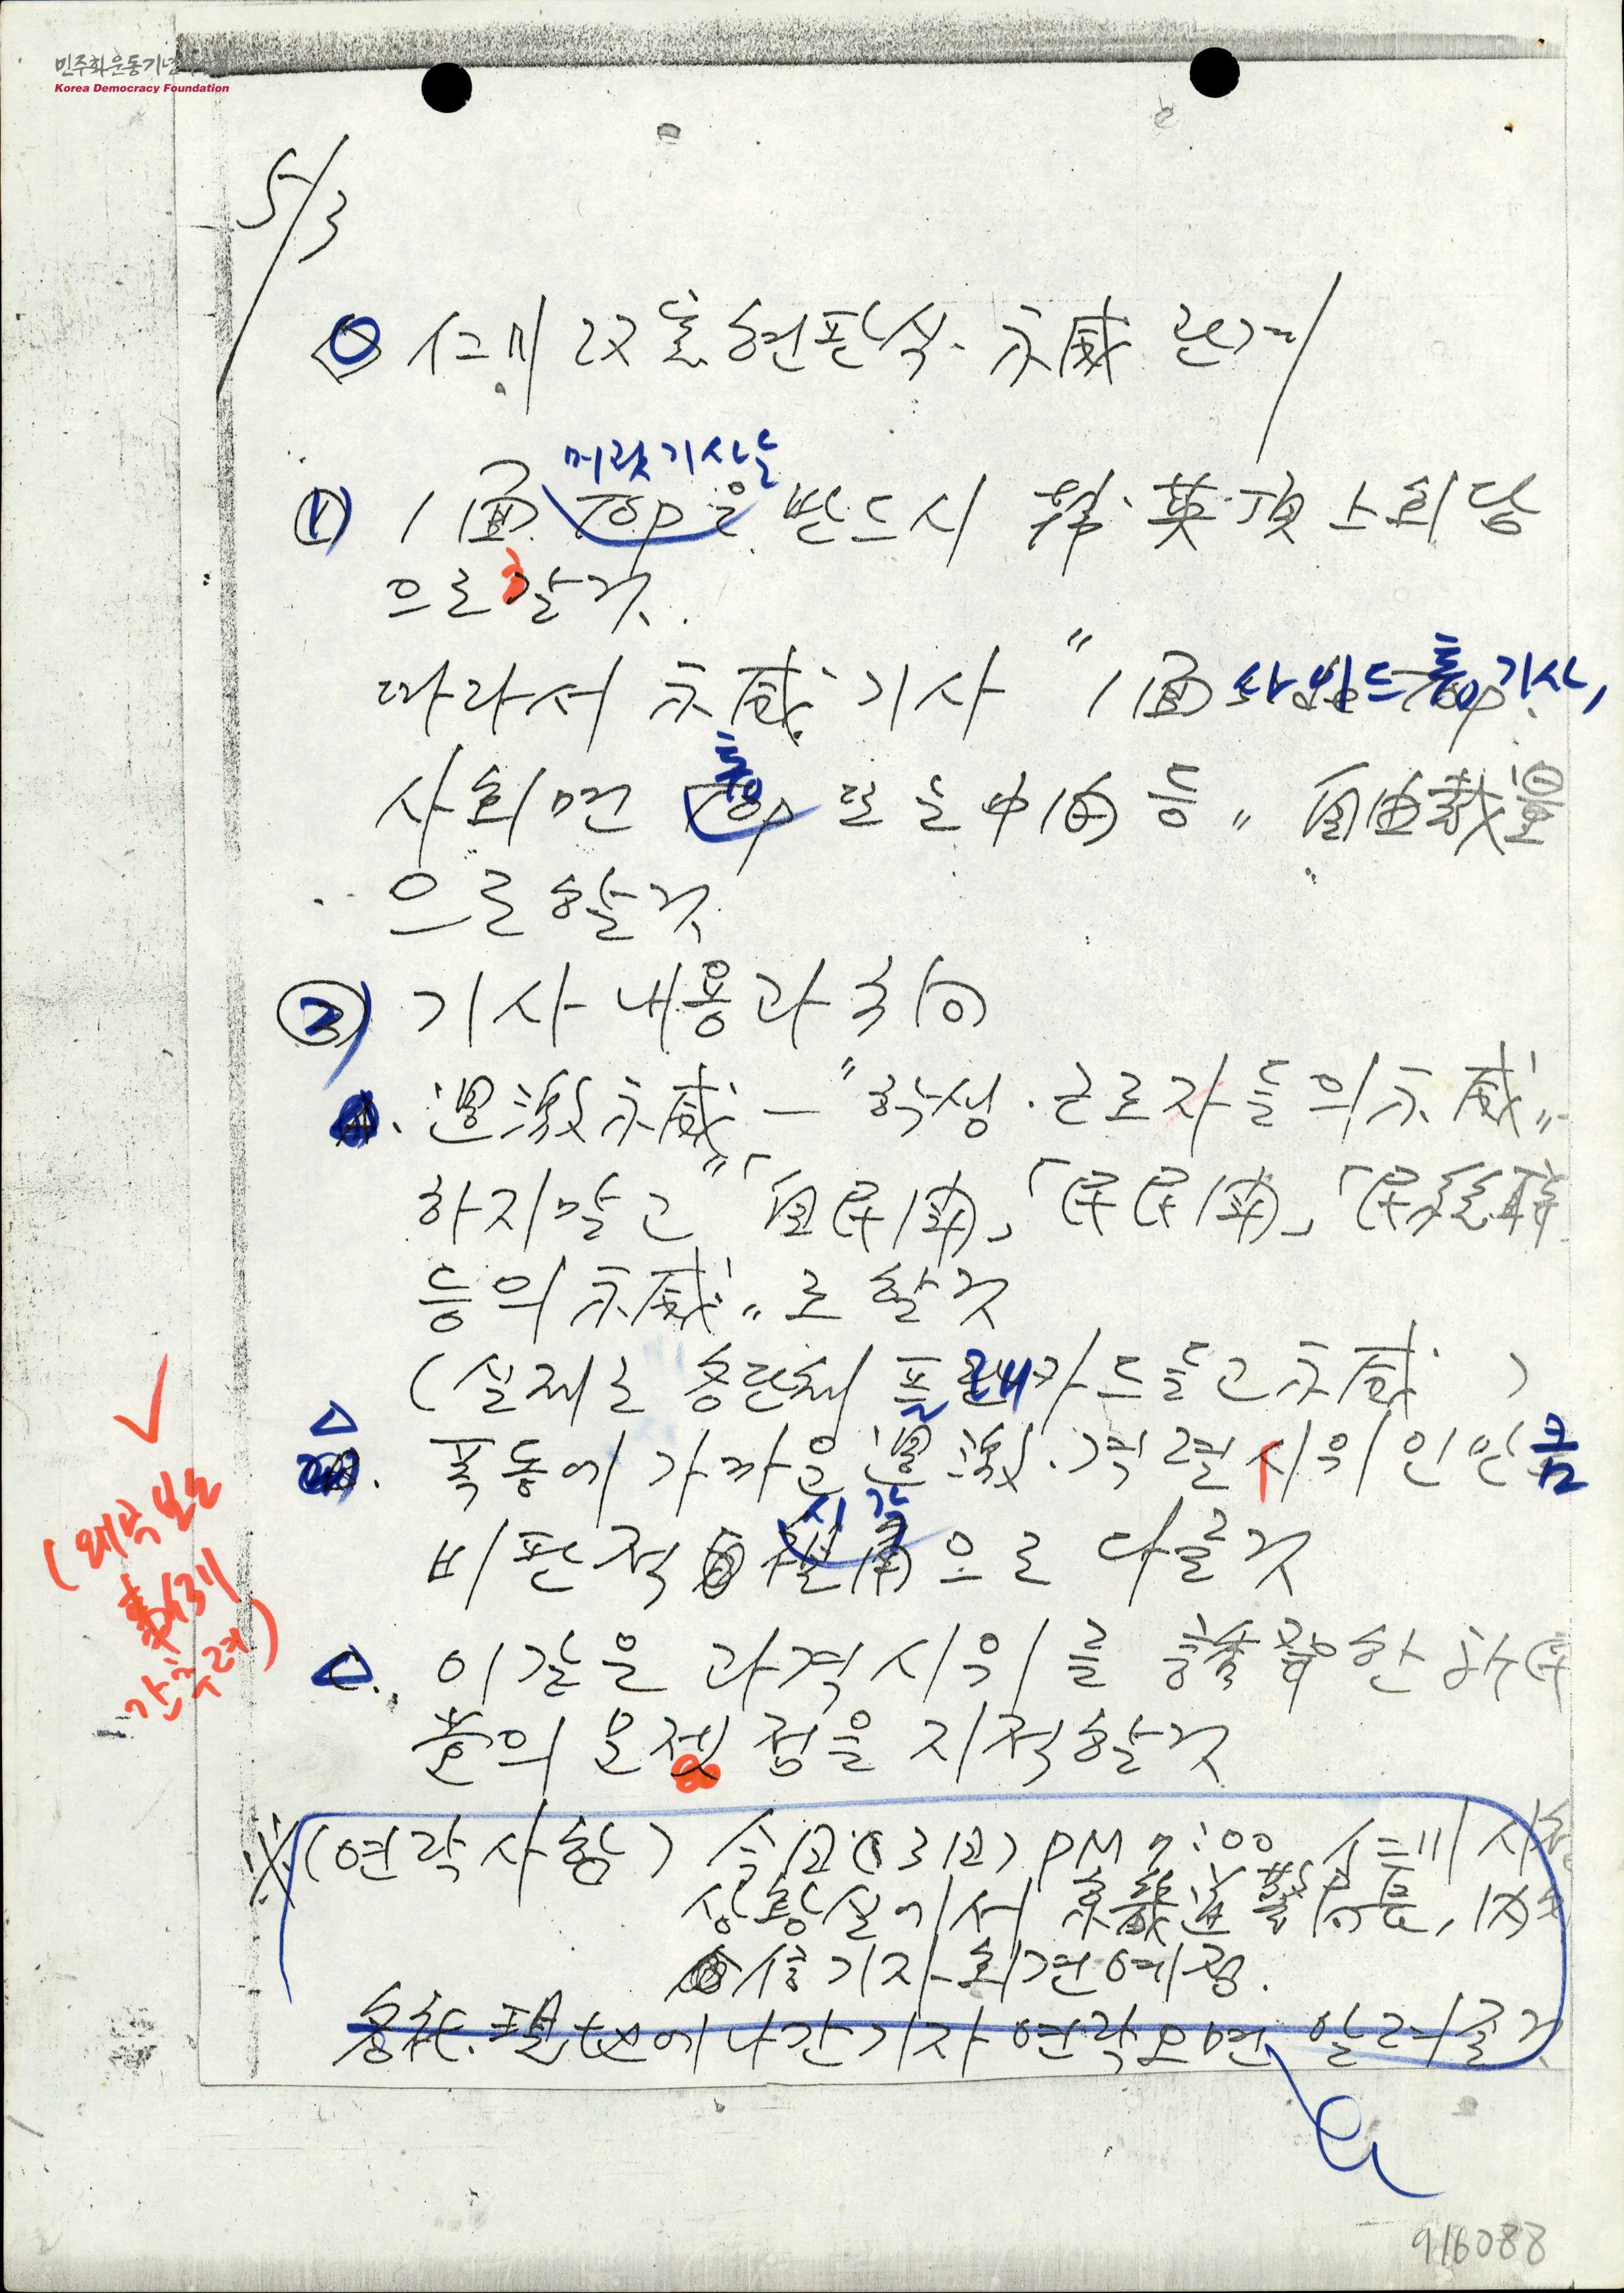 민주화운동기념
Korea Democracy Foundation
5/3
仁川 改憲현판식·示威 관계
머릿기사는
1) 1面 TOP은 반드시 韓·英頂上회담
으로 할 것.
따라서 示威 기사 "1面 사이드 톱 기사,
톱
사회면 TOP 또는 中間 등" 自由裁量
으로 할 것
2) 기사 내용과 方向
過激示威 — "학생·근로자들의 示威"
하지말고 "「自民鬪」「民民鬪」「民統聯
등의 示威"로 할 것
(실제로 플래카드 들고 示威 )
폭동에 가까운 過激·격렬 시위인만큼
시각
비판적 으로 다룰 것
이같은 과격시위를 誘發한 新民
黨의 문제점을 지적할 것
(연락사항) 今日(3日) PM 7:00 仁川시청
상황실에서 京畿道警局長, 內
信기자회견 예정.
各社 現地에 나간 기자 연락오면 알려줄 것
916088